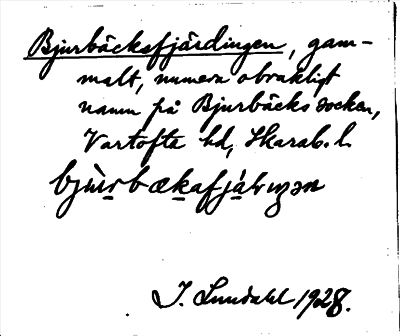 Bjurbäcksfjärdingen, gam-
malt, numera obrukligt
namn på Bjurbäcks socken,
Vartofta hd, Skarab. l.
I. Lundahl 1928.